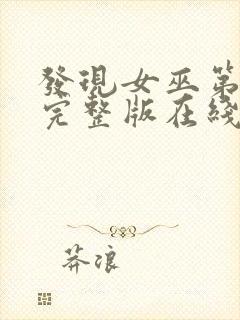 發現女巫第
完整版在綫
莽浪